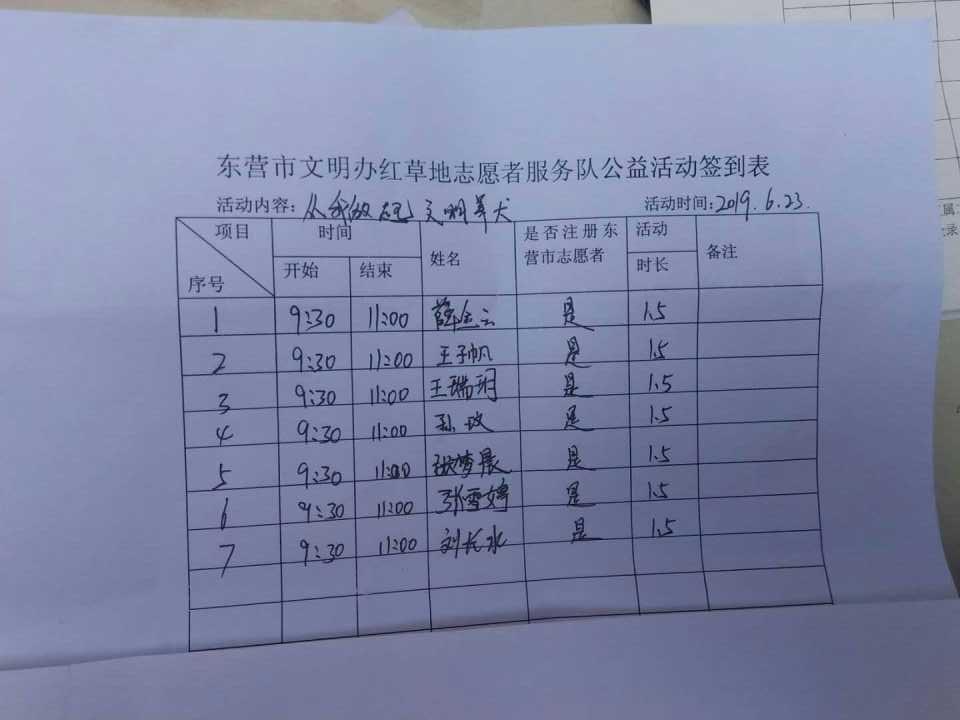 东营市文明办红草地志愿者服务队公益活动签到表
活动内容：从我做起 文明养犬 活动时间：2019.6.23.
项目 时间 姓名 是否注册东营市志愿者 活动时长 备注
序号 开始 结束
1 9:30 11:00 薛金云 是 1.5
2 9:30 11:00 王子帆 是 1.5
3 9:30 11:00 王瑞玥 是 1.5
4 9:30 11:00 孙玫 是 1.5
5 9:30 11:00 张梦晨 是 1.5
6 9:30 11:00 张雪婷 是 1.5
7 9:30 11:00 刘长水 是 1.5